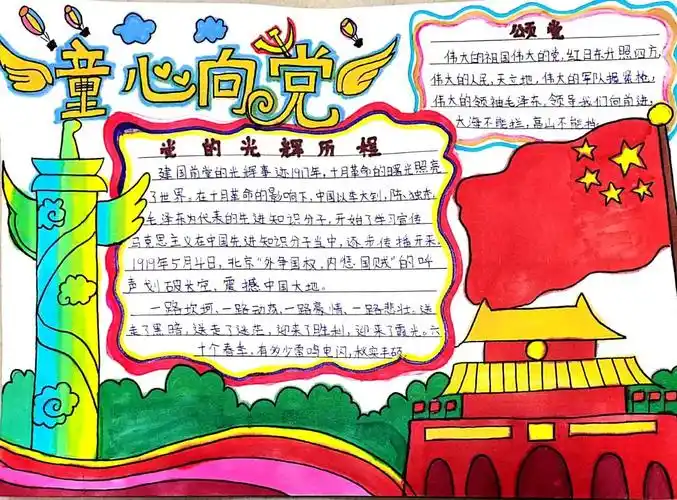 童心向党
颂党
伟大的祖国伟大的党,红日东升照四方,
伟大的人民,天立地,伟大的军队握紧枪,
伟大的领袖毛泽东,领导我们向前进,
大海不能拦,高山不能挡
党的光辉历程
建国前党的光辉事迹1917年,十月革命的曙光照亮
了世界。在十月革命的影响下,中国以李大钊,陈独秀,
毛泽东为代表的先进知识分子,开始了学习宣传
马克思主义在中国先进知识分子当中,逐步传播开来,
1919年5月4日,北京“外争国权,内惩国贼”的叫
声划破长空、震撼中国大地。
一路坎坷、一路动荡、一路豪情、一路悲壮。送
走了黑暗,送走了迷茫,迎来了胜利,迎来了霞光。六
十个春生,有多少雷鸣电闪,秋实丰硕